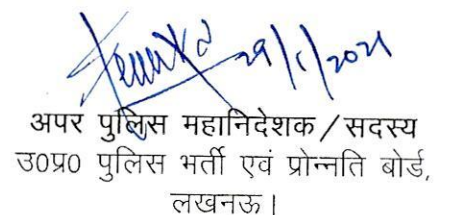 29/1/2021
अपर पुलिस महानिदेशक / सदस्य
उ0प्र0 पुलिस भर्ती एवं प्रोन्नति बोर्ड,
लखनऊ।